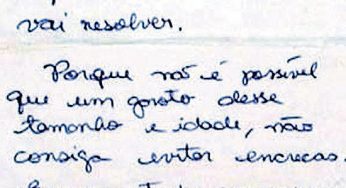 vai resolver.
Porque não é possível
que um garoto desse
tamanho e idade, não
consiga evitar encrecas.